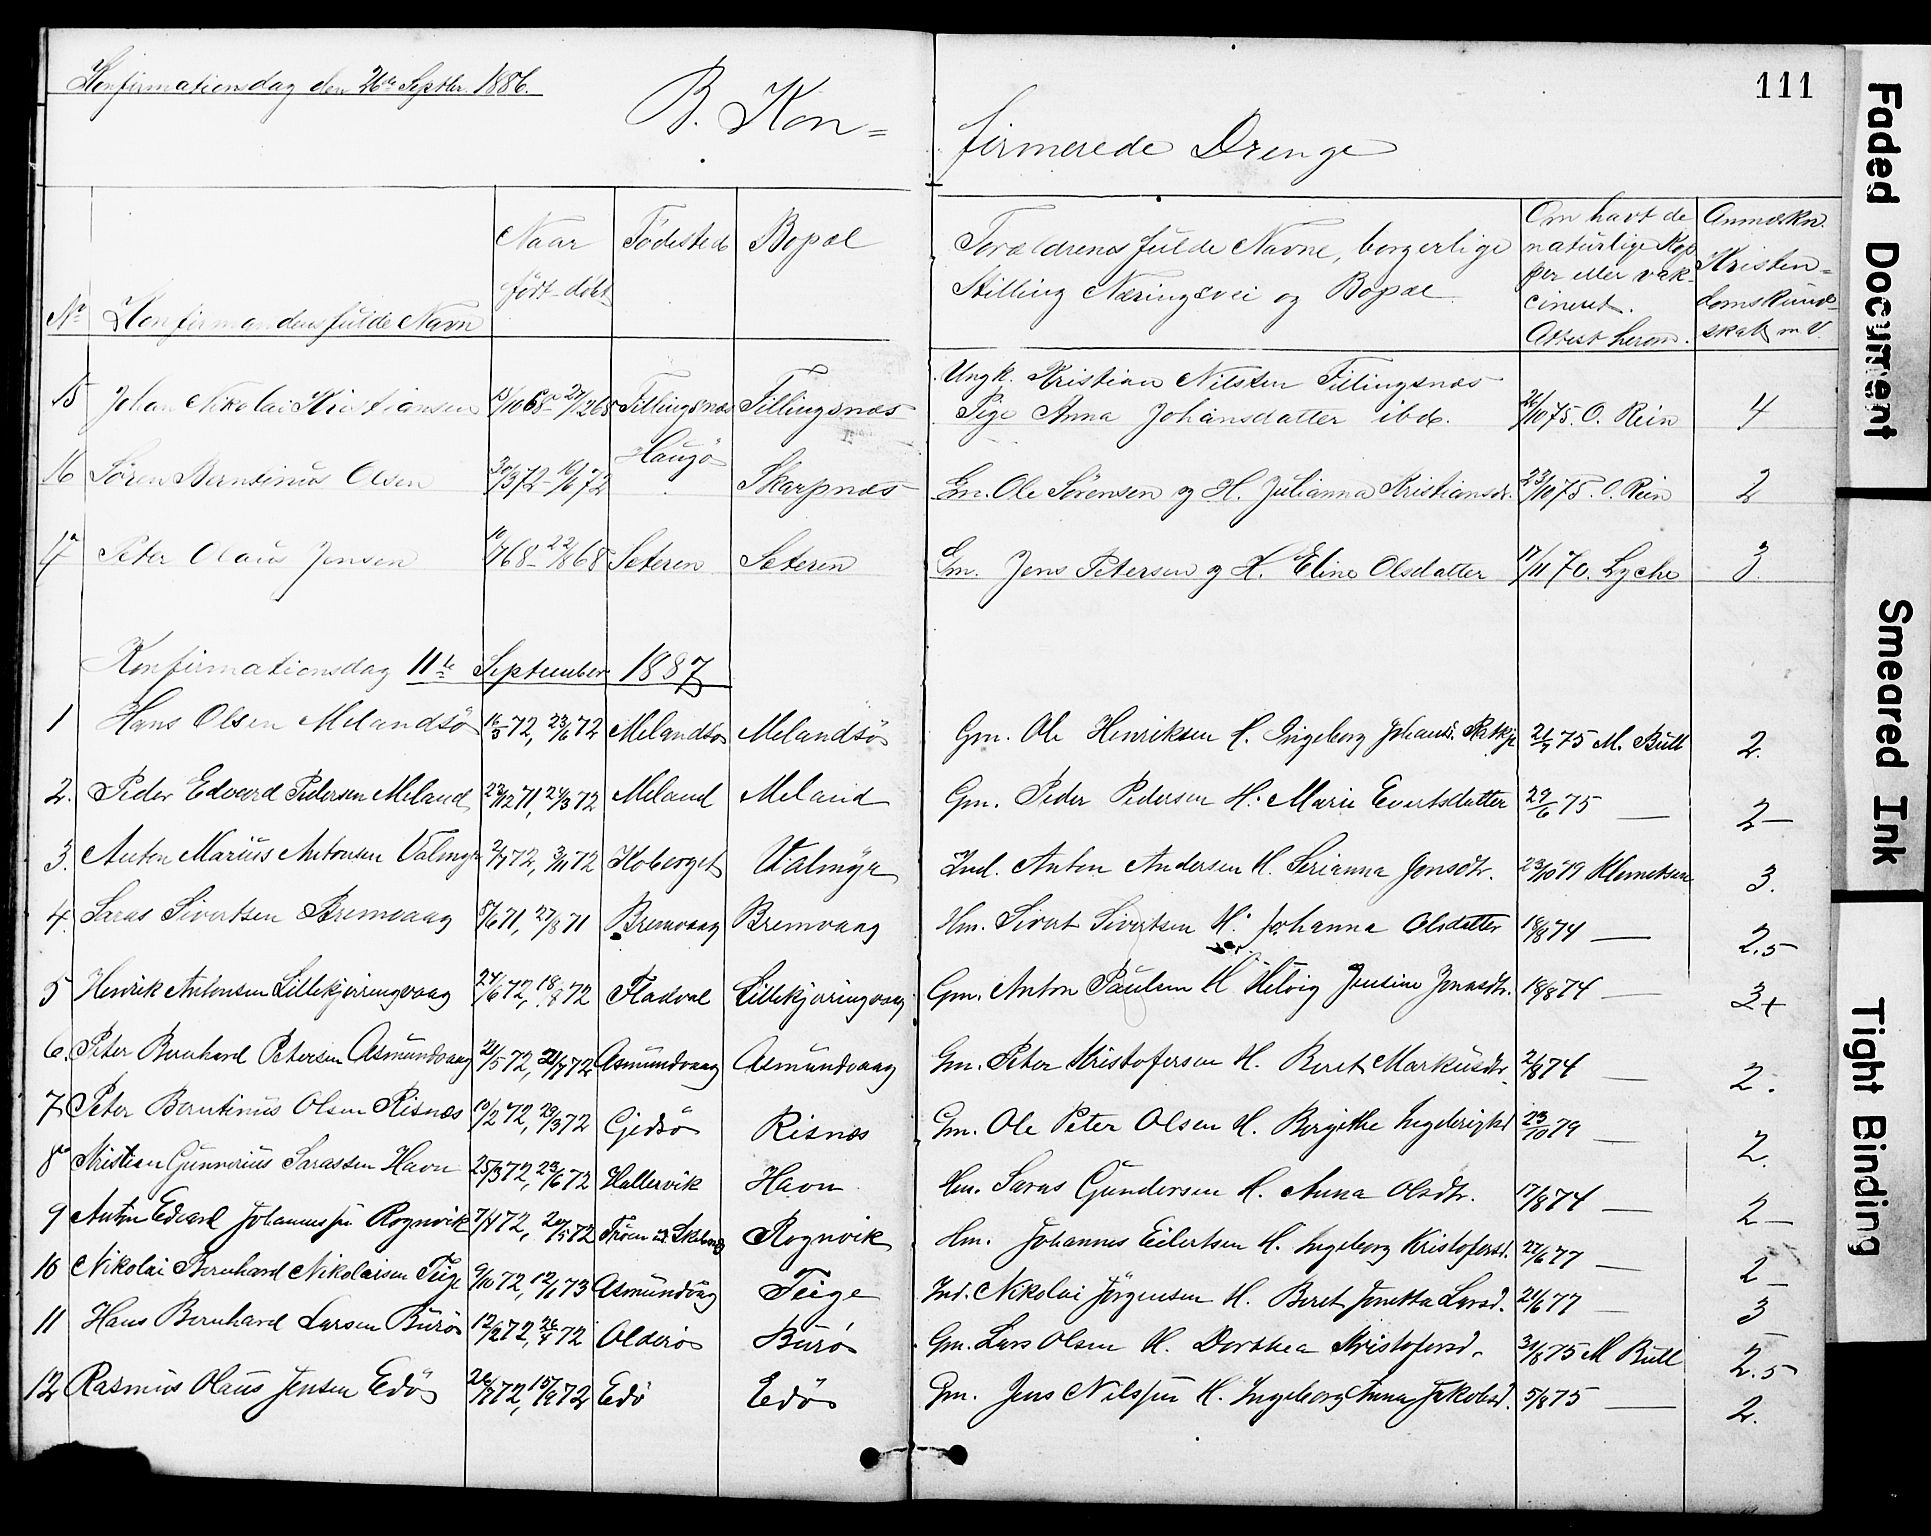 Konfirmationsdag den 26de Septbr. 1886.
B. Kon=
firmerede Drenge
111
Nr Konfirmandens fulde Navn
Naar født - døbt
Födested
Bopæl
Forældrenes fulde Navne, borgerlige
Stilling Næringsvei og Bopæl
Om havt de naturlige Kopper eller vakcineret. Attest herom.
Anmærkn. Kristendomskundskab m. V.
15 Johan Nikolai Kristiansen 10/10 68 - 27/12 68 Fillingsnæs Fillingsnæs Ungk. Kristian Nilssen Fillingsnæs
Pige Anna Johansdatter ibd. 26/10 75. O. Rein 4
16 Sören Berntinus Olsen 30/3 72 - 16/6 72 Haugö Skarpnæs Gm. Ole Sørensen og H. Julianna Kristiansd. 23/10 75. O. Rein 2
17 Peter Olaus Jensen 10/7 68 - 22/8 68 Seteren Seteren Gm. Jens Petersen og H. Eline Olsdatter 17/11 70. Lyche 3.
Konfirmationsdag 11te September 1887
1 Hans Olsen Melandsö 16/5 72, 23/6 72 Melandsö Melandsö Gm. Ole Henriksen H. Ingeborg Johansd. 21/7 75 M. Bull 2.
2. Peder Edvard Pedersen Meland 22/12 71, 24/3 72 Meland Meland Gm. Peder Pedersen H. Marie Evertsdatter 29/6 75 — 2—
3. Anton Marius Antonsen Valmyr 2/7 72, 3/11 72 Hoberget Valmyr Ind. Anton Andersen H. Serianna Jonsdtr. 23/10 79 Klemetsen 3.
4. Saras Sivertsen Bremvaag 5/6 71, 27/8 71 Bremvaag Bremvaag Hm. Sivert Sivertsen H. Johanna Olsdatter 18/8 74 — 2.5
5 Henrik Antonsen Lillekjerringvaag 24/6 72, 18/8 72 Fladval Lillekjerringvaag Gm. Anton Paulsen H. Helvig Jensine Jonasdtr. 18/8 74 — 3+
6. Peter Bernhard Petersen Asmundvaag 21/5 72, 21/7 72 Asmundvaag Asmundvaag Gm. Peter Kristofersen H. Beret Markusdtr. 2/8 74 — 2.
7 Peter Berntinus Olsen Risnæs 10/2 72, 29/3 72 Gjedsö Risnæs Gm. Ole Peter Olsen H. Bergitte Ingebrigtsd. 23/10 79 — 2.
8 Kristian Gunnerius Sarassen Havn 25/3 72, 23/6 72 Hallervik Havn Hm. Saras Gundersen H. Anna Olsdtr. 17/8 74 — 2—
9 Anton Edvard Johannessen Rognvik 7/4 72, 20/5 72 Rognvik Hm. Johannes Eilertsen H. Ingeborg Kristofersd. 27/6 77 — 2—
10 Nikolai Bernhard Nikolaisen Teige 9/10 72, 12/1 73 Asmundvaag Teige Ind. Nikolai Jörgensen H. Beret Jonetta Larsd. 21/6 77 — 3
11 Hans Bernhard Larsen Burö 12/2 72, 26/4 72 Olderö Burö Gm. Lars Olsen H. Dorthea Kristofersd. 31/8 75 M Bull 2.5
12 Rasmus Olaus Jensen Edö 26/7 72, 15/9 72 Edö Edö Gm. Jens Nilssen H. Ingeborg Anna Jakobsd. 5/8 75 — 2.
Faded Document
Smeared Ink
Tight Binding